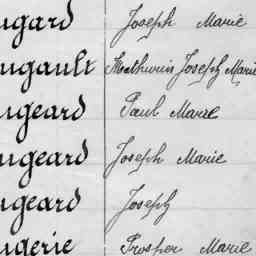 ugard Joseph Marie
ugault Mathurin Joseph Marie
ugeard Paul Marie
ugeard Joseph Marie
ugeard Joseph
ugerie Prosper Marie